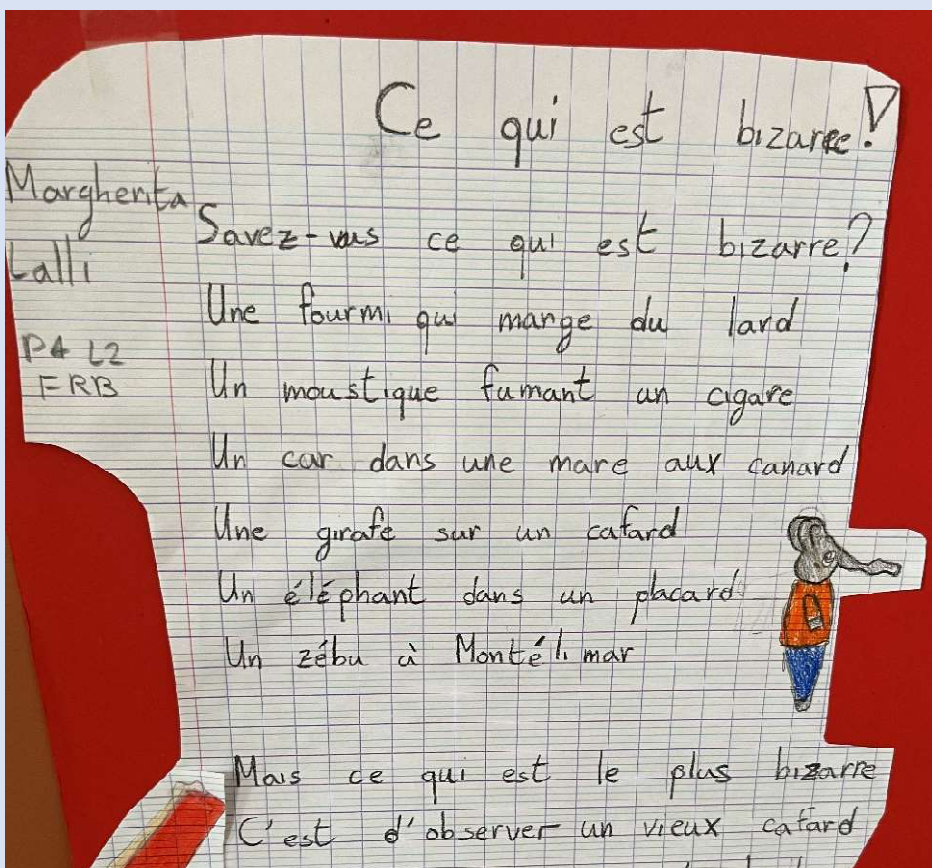 Ce qui est bizarre!
Margherita
Lalli
P4 L2
FRB
Savez-vous ce qui est bizarre?
Une fourmi qui mange du lard
Un moustique fumant un cigare
Un car dans une mare aux canard
Une girafe sur un cafard
Un éléphant dans un placard
Un zébu à Montélimar
Mais ce qui est le plus bizarre
C'est d'observer un vieux cafard